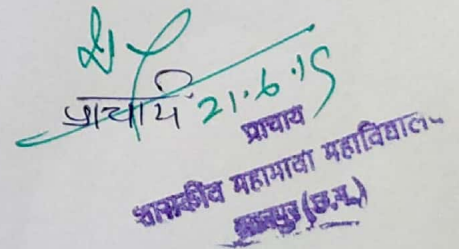 प्राचार्य 21.6.19
प्राचार्य
शासकीय महामाया महाविद्यालय
(छ.ग.)